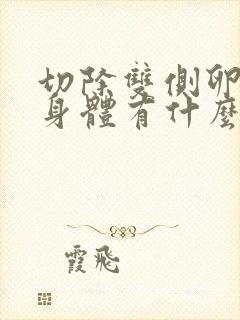 切除雙側卵
身體有什麼
霞飛